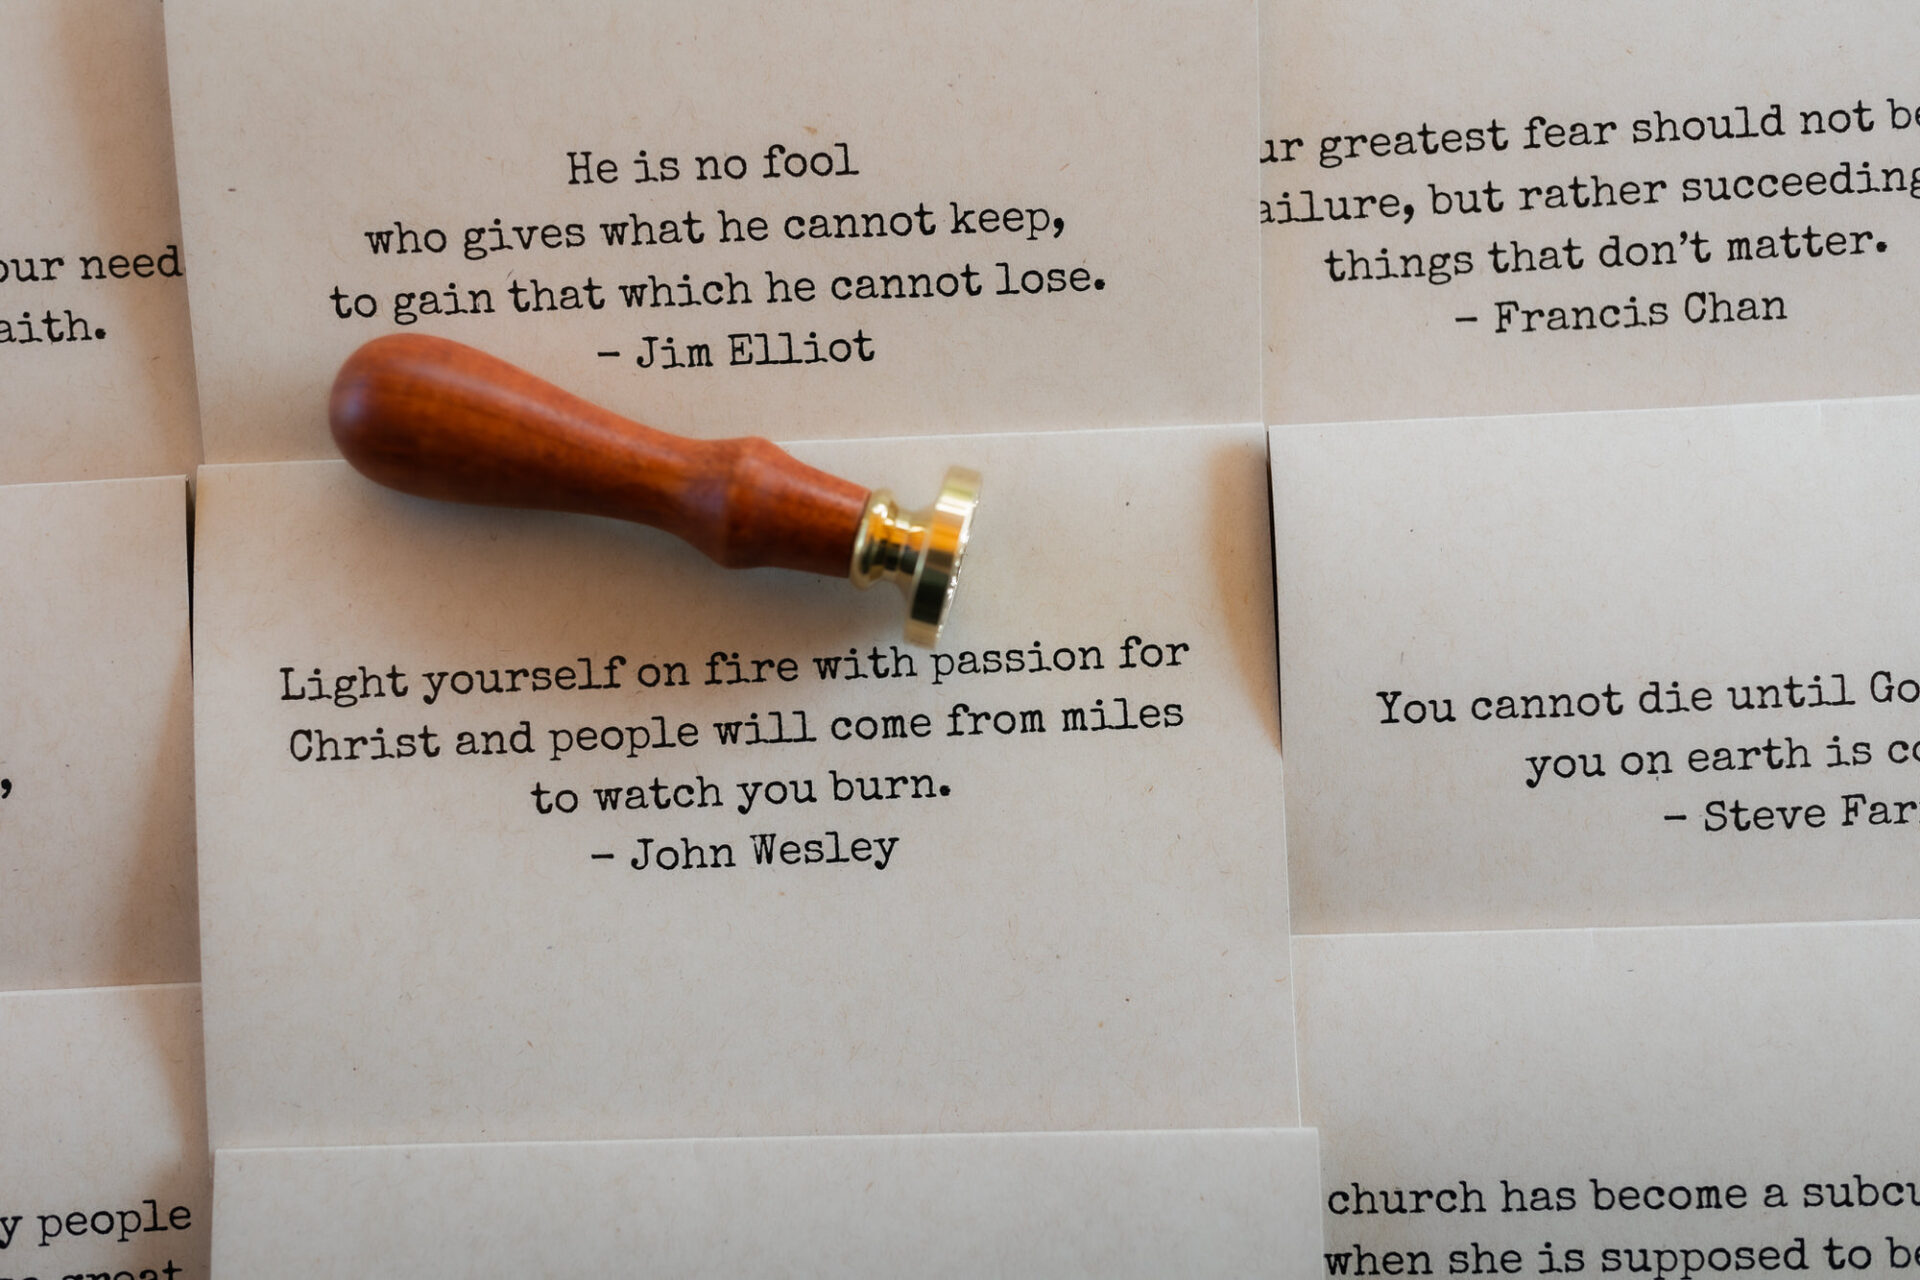 He is no fool
who gives what he cannot keep,
to gain that which he cannot lose.
– Jim Elliot
greatest fear should not
but rather succeeding
things that don't matter.
– Francis Chan
need
Light yourself on fire with passion for
Christ and people will come from miles
to watch you burn.
– John Wesley
You cannot die until
you on earth is
– Steve
people
church has become a
when she is supposed to